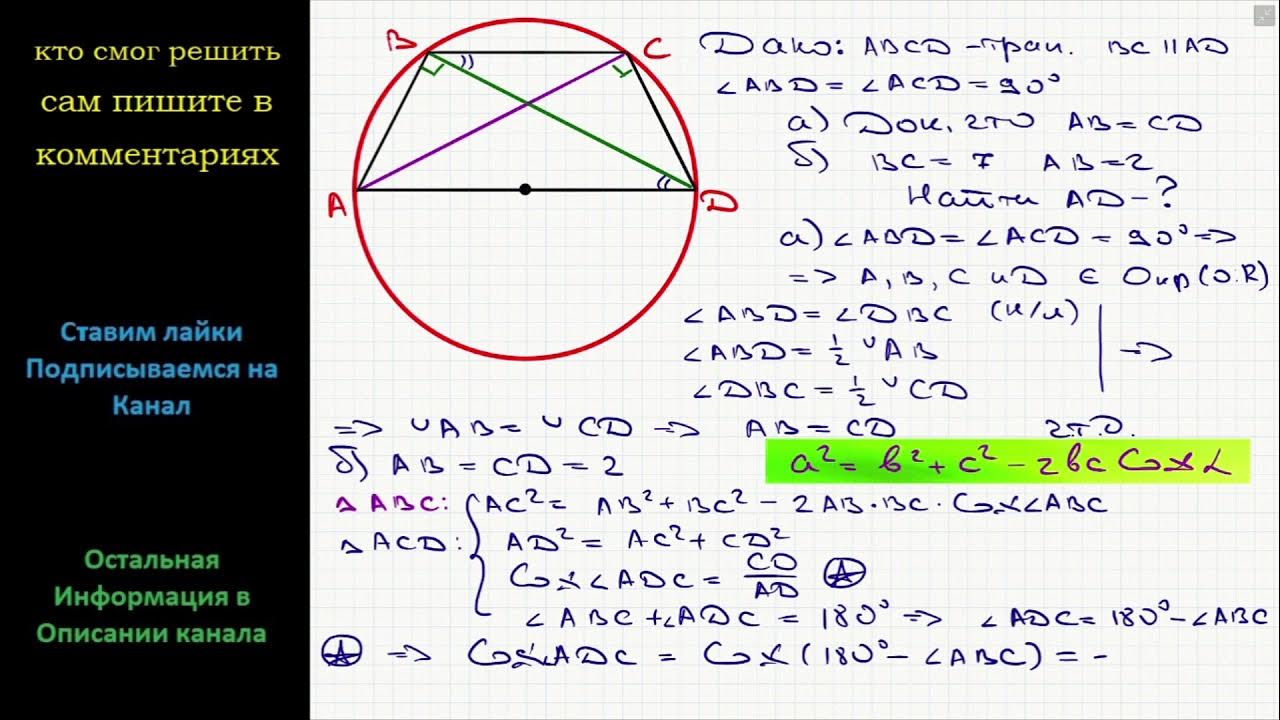 кто смог решить
сам пишите в
комментариях
Ставим лайки
Подписываемся на
Канал
Остальная
Информация в
Описании канала
B
C
A
D
Дано: ABCD – трап. BC || AD
∠ABD = ∠ACD = 90°
а) Док, что AB = CD
б) BC = 7 AB = 2
Найти AD – ?
а) ∠ABD = ∠ACD = 90° =>
=> A, B, C и D ∈ Окр (O.R)
∠ABD = ∠DBC (н/л)
∠ABD = ½ ◡AB
∠DBC = ½ ◡CD
=>
=> ◡AB = ◡CD => AB = CD ч.т.д.
б) AB = CD = 2
a² = b² + c² – 2bc Cos α
△ABC: AC² = AB² + BC² – 2AB·BC·Cos∠ABC
△ACD: AD² = AC² + CD²
Cos∠ADC = CD/AD ⍟
∠ABC + ∠ADC = 180° => ∠ADC = 180° – ∠ABC
⍟ => Cos∠ADC = Cos(180° – ∠ABC) = –